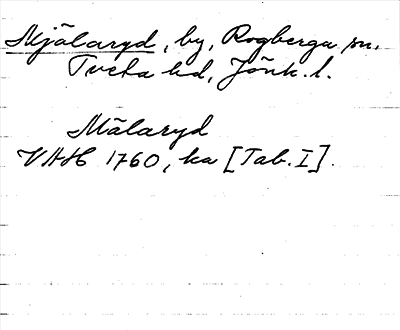 Mjälaryd, by, Rogberga sn,
Tveta hd, Jönk. l.
Mälaryd
VAH 1760, ka [Tab. I].